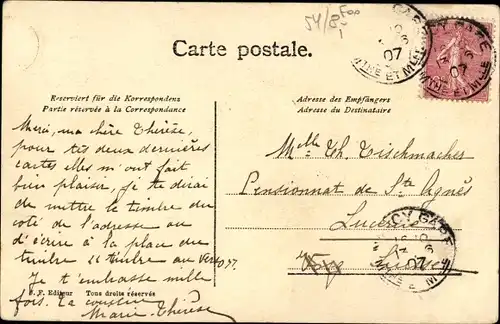 54/8 Foo
Carte postale.
Reserviert für die Korrespondenz
Partie réservée à la Correspondance
Adresse des Empfängers
Adresse du Destinataire
Merci, ma chère Thérèse,
pour tes deux dernières
cartes elles m'ont fait
bien plaisir, je te dirai
de mettre le timbre du
coté de l'adresse ou
d'écrire à la place du
timbre "timbre au verso".
Je t'embrasse mille
fois. Ta cousine
Marie-Thérèse
Melle Th. Tischmacher
Pensionnat de Ste Agnès
Lucerne
Suisse
CY GARE
07
NE ET M
CY GARE
07
E F. Editeur Tous droits réservés